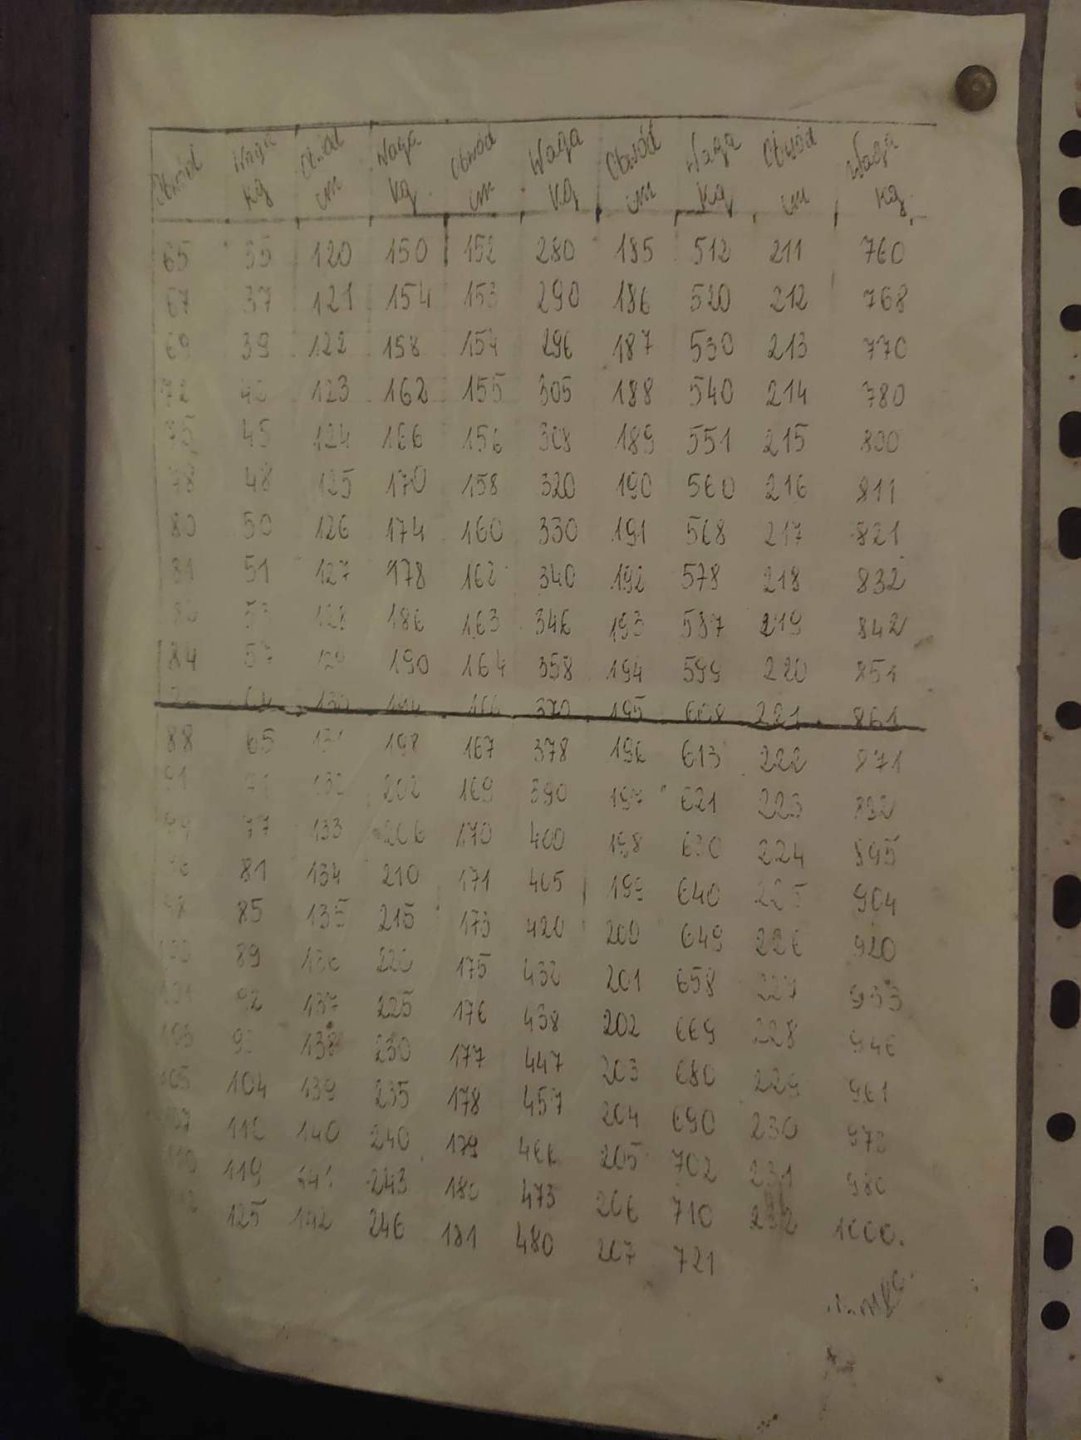 Obwód Waga Obwód Waga Obwód Waga Obwód Waga Obwód Waga
kg cm kg cm kg cm kg cm kg
65 35 120 150 152 280 185 512 211 760
67 37 121 154 153 290 186 520 212 768
69 39 122 158 154 296 187 530 213 770
72 123 162 155 305 188 540 214 780
75 45 124 166 156 308 189 551 215 800
78 48 125 170 158 320 190 560 216 811
80 50 126 174 160 330 191 568 217 821
81 51 127 178 162 340 192 578 218 832
53 128 186 163 346 193 587 219 842
84 57 129 190 164 358 194 599 220 851
130 166 370 195 608 221 861
88 65 131 198 167 378 196 613 222 871
91 132 202 169 390 197 621 223
77 133 206 170 400 198 630 224 895
81 134 210 171 405 199 640 225 904
85 135 215 173 420 200 649 226 920
89 136 220 175 432 201 658 227 933
92 137 225 176 438 202 669 228 946
138 230 177 447 203 680 229 961
105 104 139 235 178 457 204 690 230
140 240 179 466 205 702 231 980
119 141 243 180 473 206 710 232 1000.
125 142 246 181 480 207 721